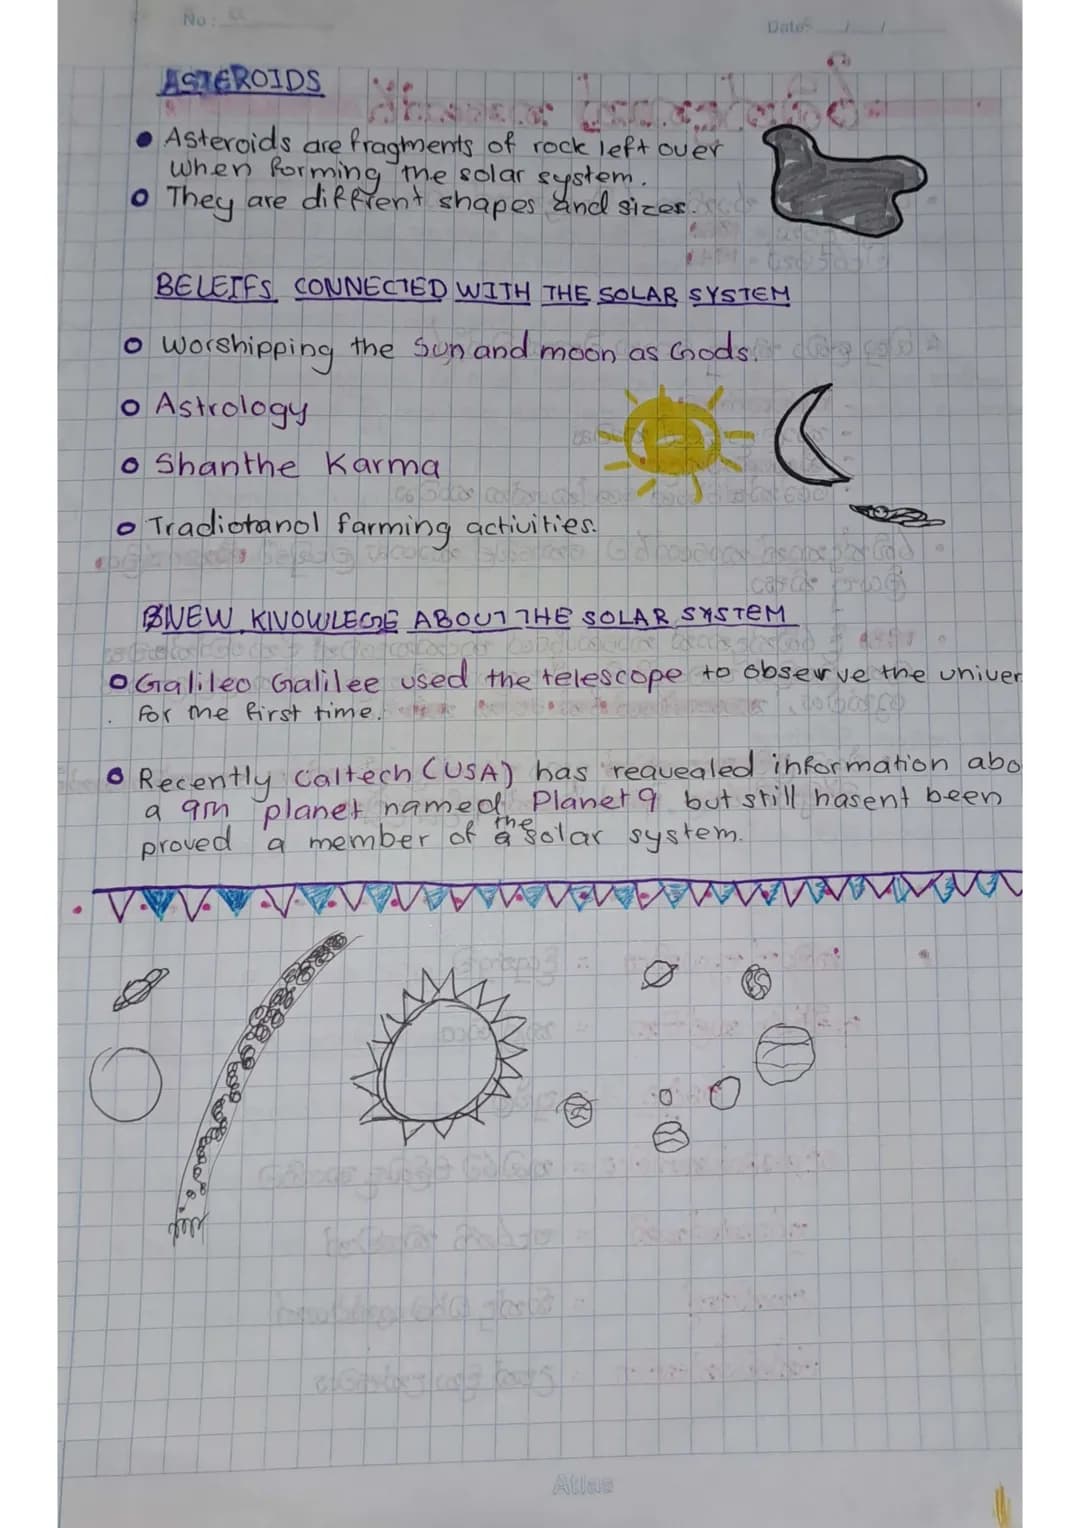 No:
Date:
ASTEROIDS
Asteroids are fragments of rock left over
when forming the solar system.
They are diffrent shapes and sizes.
BELEIFS CONNECTED WITH THE SOLAR SYSTEM
Worshipping the Sun and moon as Gods.
Astrology
Shanthe Karma
Tradiotanol farming activities.
NEW KNOWLEGE ABOUT THE SOLAR SYSTEM
Galileo Galilee used the telescope to observe the univer
for the first time.
Recently Caltech (USA) has requealed information abo
a 9th planet named Planet 9 but still hasent been
proved a member of the solar system.
Atlas